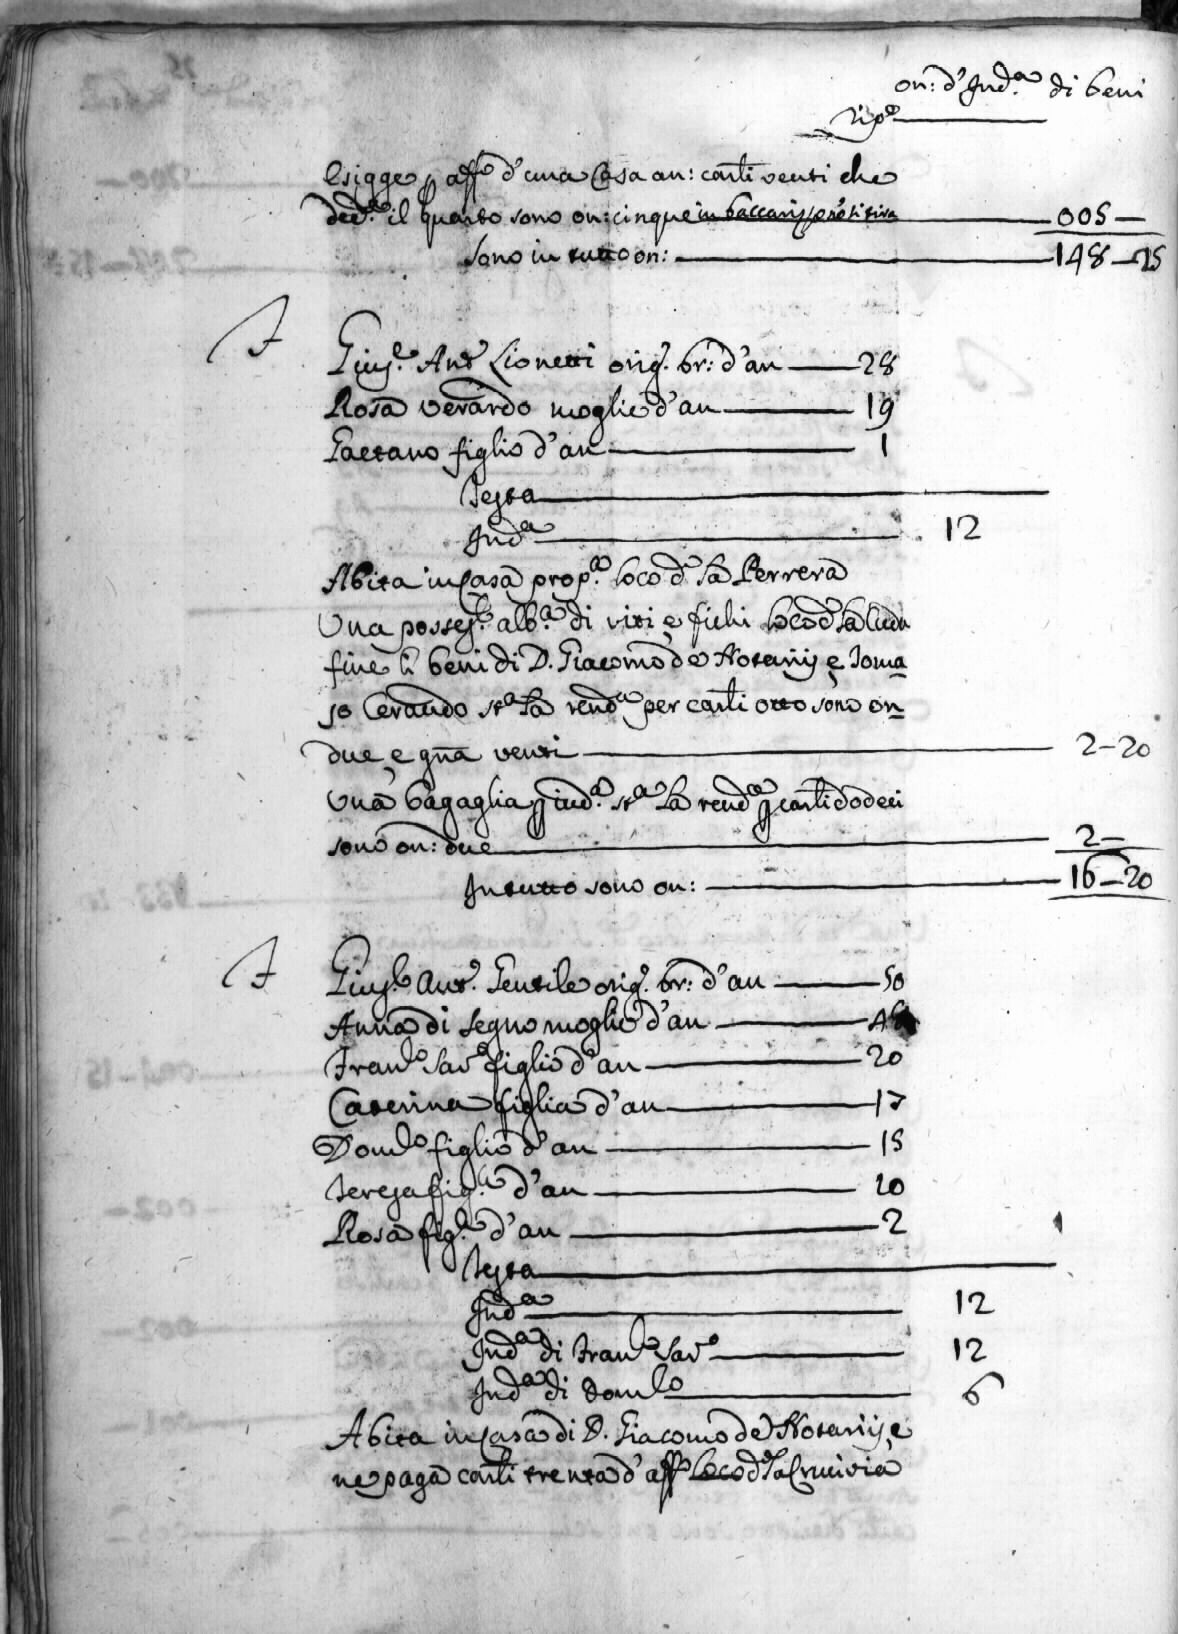 on: d'Ind.a di beni
Rip.o
Esigge p affo d'una Casa an: carli venti che
ded.o il quarto sono on: cinque 005 —
sono in tutto on: 148 — 15
Gius.e Ant.o Lionetti orig.o br: d'an 28
Rosa Verardo moglie d'an 19
Gaetano figlio d'an 1
Testa
Ind.a 12
Abita in Casa prop.a loco d.o la Perrera
Una posses.e alb.a di viti e fichi loco d.o la
fine li beni di D. Giacomo de Notariis e Toma
so Cerando st.a la rend.a per carli otto sono on
due e gna venti 2 - 20
Una bagaglia p ind.a st.a la rend.a p carli dodeci
sono on: due 2 —
In tutto sono on: 16 — 20
Gius.e Ant.o Gentile orig.o br: d'an 50
Anna di Segno moglie d'an
Fran.co Sav.o figlio d'an 20
Caterina figlia d'an 17
Dom.co figlio d'an 15
Teresa fig.a d'an 10
Rosa fig.a d'an 2
Testa
Ind.a 12
Ind.a di Fran.co Sav.o 12
Ind.a di Dom.co 6
Abita in Casa di D. Giacomo de Notariis, e
ne paga carli trenta d'affo loco d.o la Crucivia